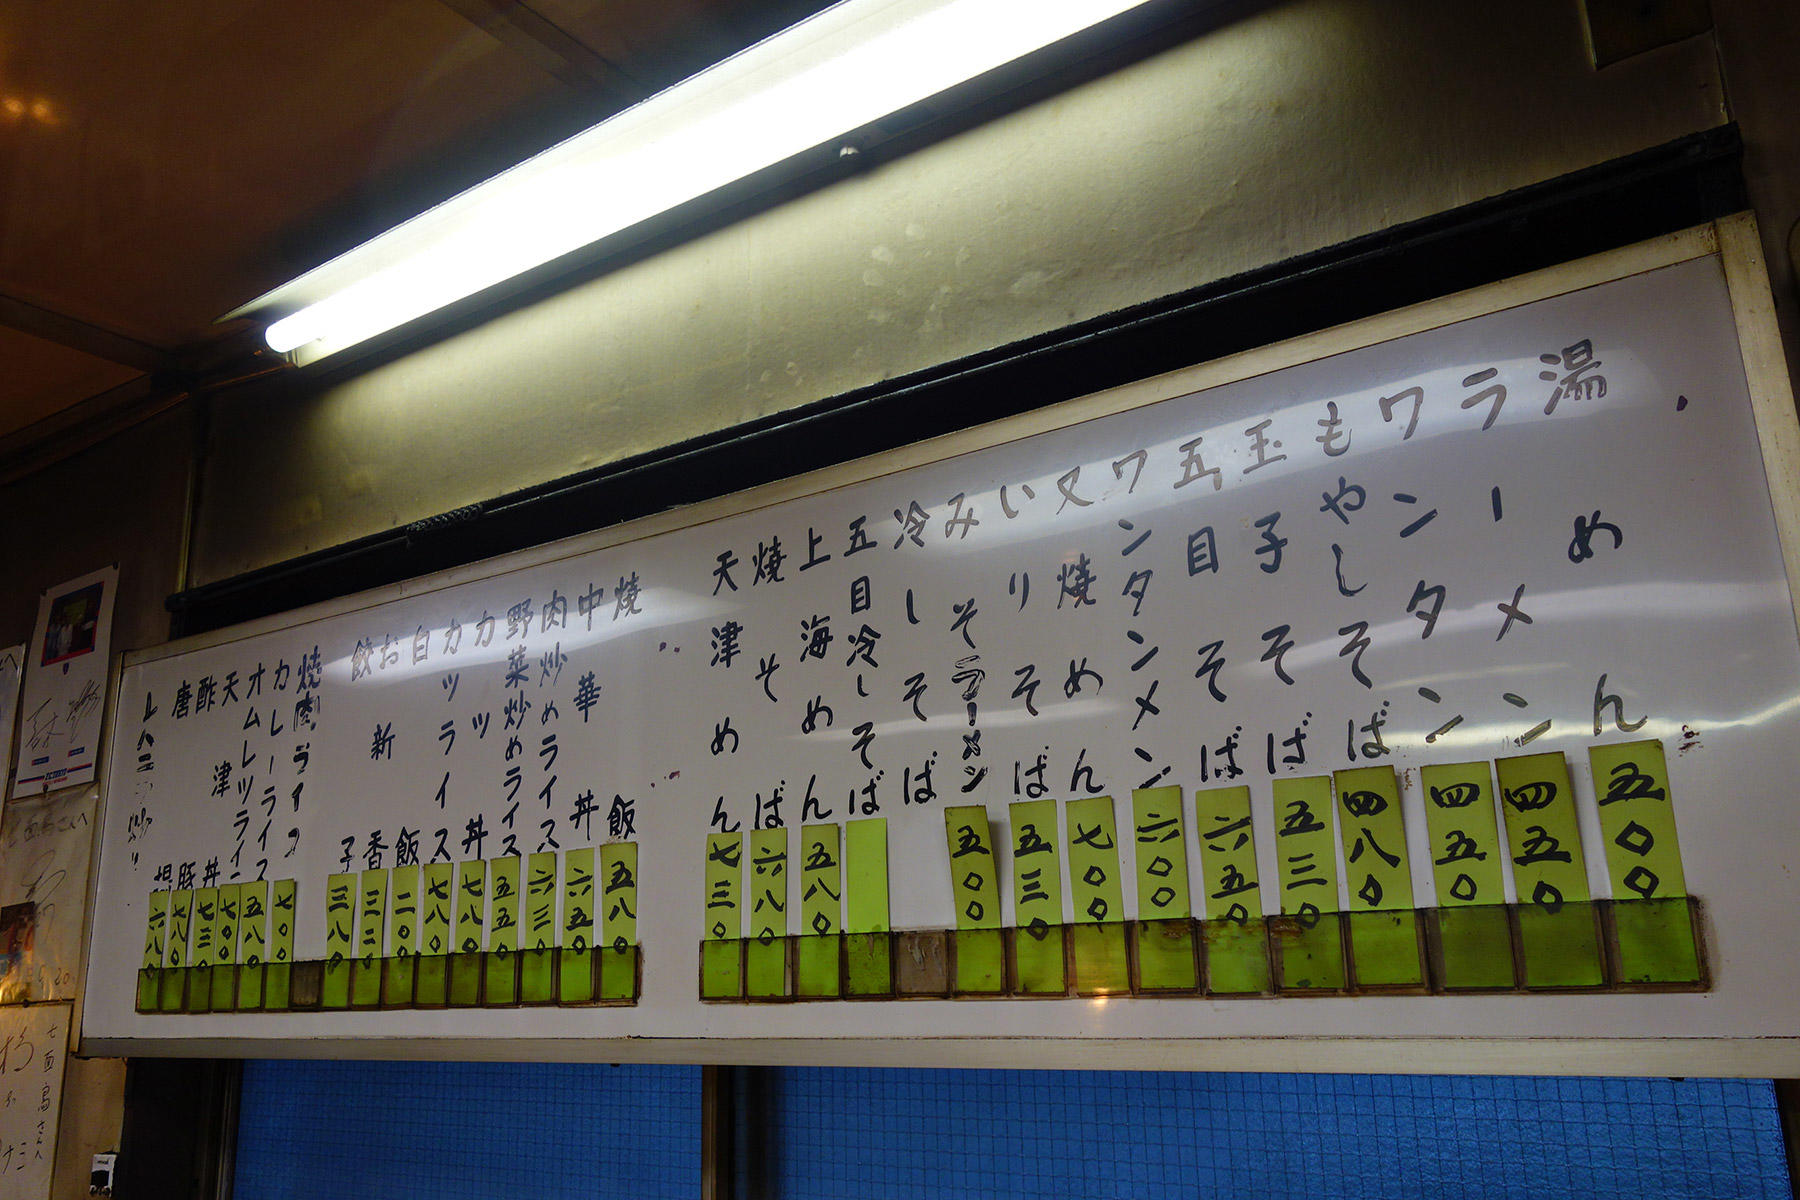 湯めん 五〇〇
ラーメン 四五〇
ワンタン 四五〇
もやしそば 四八〇
玉子そば 五三〇
五目そば 六五〇
ワンタンメン 六〇〇
又焼めん 七〇〇
いりそば 五三〇
みそラーメン 五〇〇
冷しそば
五目冷しそば
上海めん 五八〇
焼そば 六八〇
天津めん 七三〇
焼飯 五八〇
中華丼 六五〇
肉炒めライス 六三〇
野菜炒めライス 五五〇
カツ丼 七八〇
カツライス 七八〇
白飯 二〇〇
お新香
餃子 三八〇
焼肉ライス
カレーライス 七〇〇
オムレツライ 五八〇
天津丼 七〇〇
酢豚 七八〇
唐揚 六八〇
七面鳥さんへ